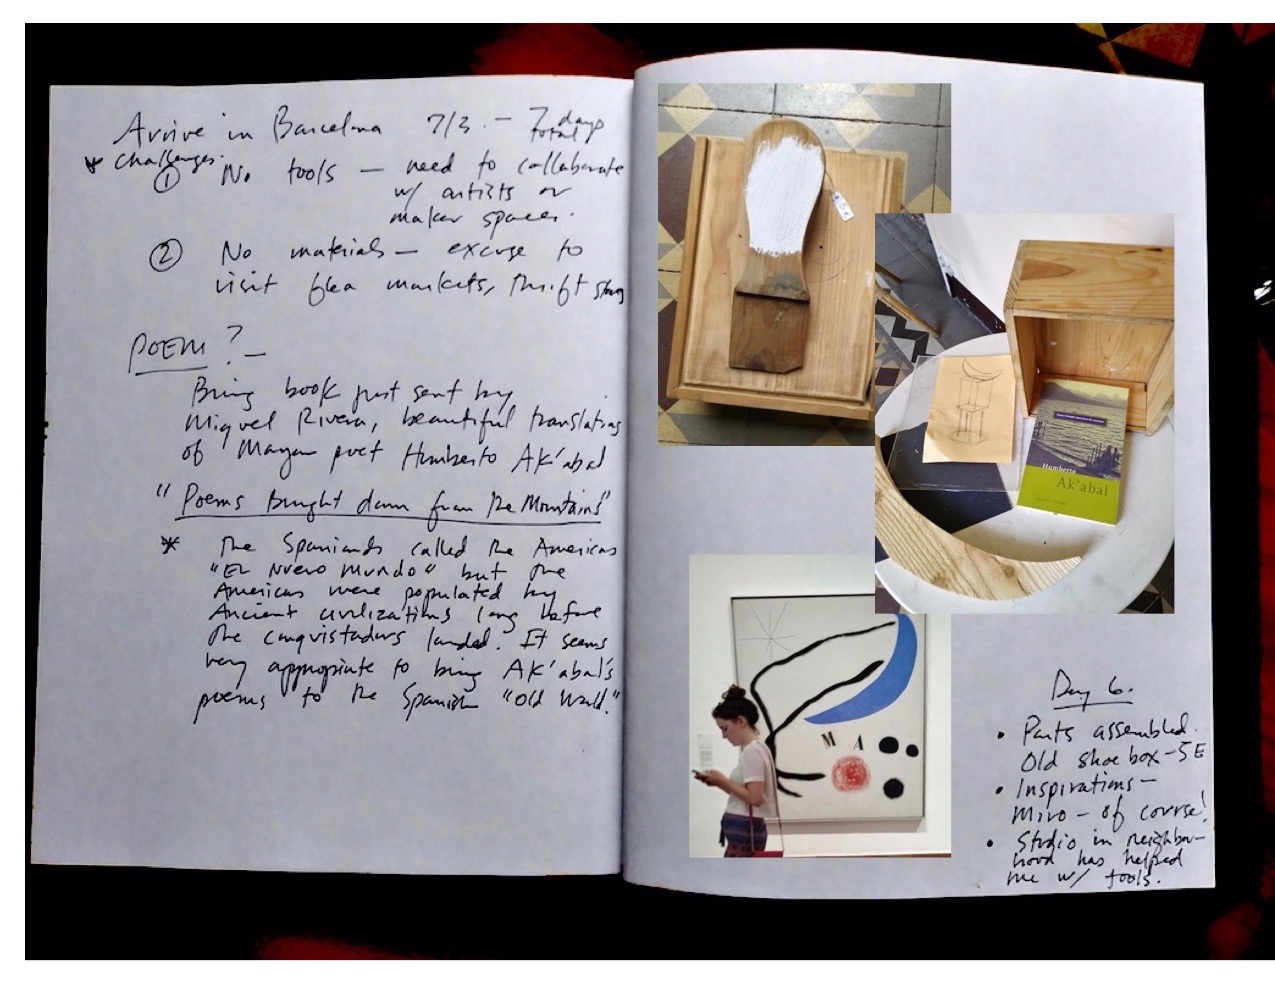 Arrive in Barcelona 7/3 - 7 days total
* Challenges:
① No tools - need to collaborate
w/ artists or
maker spaces.
② No materials - excuse to
visit flea markets, thrift stores
POEM? -
Bring book just sent by
Miguel Rivera, beautiful translations
of Mayan poet Humberto Ak'abal
"Poems Brought down from the Mountains"
* The Spaniards called the Americas
"El Nuevo Mundo" but the
Americas were populated by
Ancient civilizations long before
the conquistadors landed. It seems
very appropriate to bring Ak'abal's
poems to the Spanish "Old World."
Humberto
Ak'abal
M A
Day 6.
• Parts assembled.
Old shoe box - 5E
• Inspirations -
Miro - of course!
• Studio in neighbor-
hood has helped
me w/ tools.